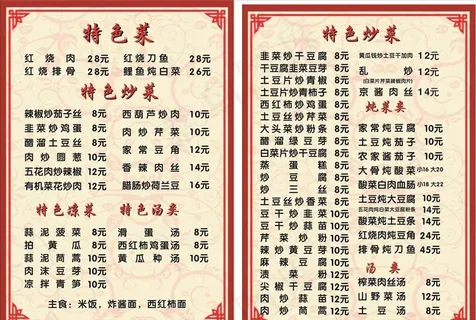 特色菜
红烧肉 28元 红烧刀鱼 28元
红烧排骨 28元 鲤鱼炖白菜 26元
特色炒菜
辣椒炒茄子丝 8元 西葫芦炒肉 10元
韭菜炒鸡蛋 8元 肉炒芹菜 10元
醋溜土豆丝 8元 家常豆角 12元
肉炒圆葱 10元 香辣肉丝 14元
五花肉炒辣椒 12元 腊肠炒荷兰豆 16元
有机菜花炒肉 12元
特色凉菜 特色汤类
蒜泥菠菜 8元 滑蛋汤 8元
拍黄瓜 8元 西红柿鸡蛋汤 8元
蒜泥茼蒿 10元 黄瓜种汤 10元
肉沫豆芽 10元
凉拌青笋 10元
主食：米饭，炸酱面，西红柿面
特色炒菜
韭菜炒干豆腐 8元
干豆腐韭菜豆芽 8元
土豆片炒青椒 8元
土豆片炒青柿子 8元
西红柿炒鸡蛋 8元
土豆丝炒芹菜 8元
大头菜炒粉条 8元
醋溜绿豆芽 8元
白菜片炒干豆腐 8元
蒸蛋糕 6元
炒豆腐 8元
炒三丝 8元
土豆丝炒香菜 8元
豆干炒韭菜 10元
豆干炒蒜苗 10元
芹菜炒粉 10元
辣椒炒干豆腐 10元
麻辣豆腐 10元
渍菜粉 12元
尖椒干豆腐 12元
肉炒蒜苗 12元
肉炒茼蒿 12元
黄瓜钱炒土豆干加肉 12元
乱炒 12元
京酱肉丝 14元
炖菜类
家常炖豆腐 10元
土豆炖茄子 10元
农家酱茄子 10元
大骨炖酸菜 小16 大20
酸菜白肉血肠 小18 大22
土豆炖大豆腐 10元
酸菜炖土豆 14元
红烧肉炖豆角 24元
排骨炖刀鱼 45元
汤类
榨菜肉丝汤 8元
山野菜汤 12元
土豆汤 12元